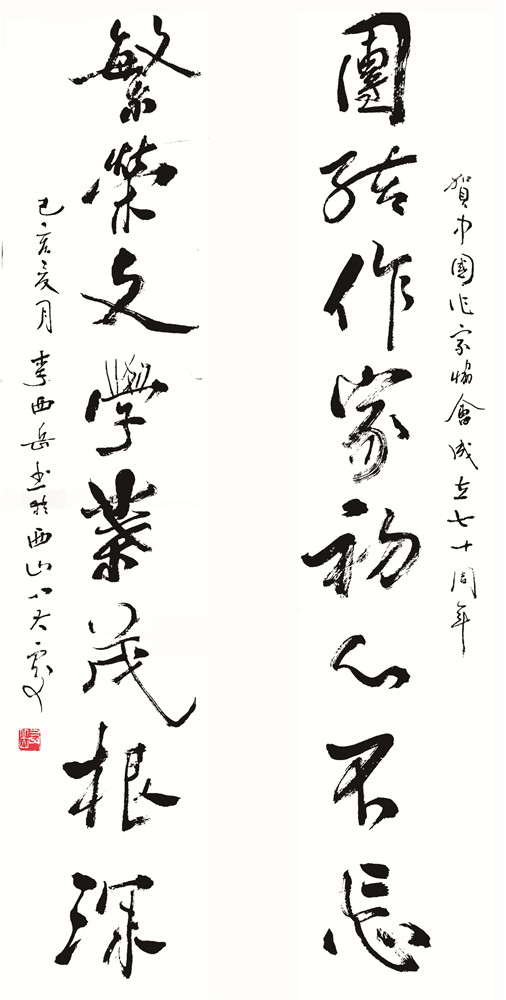 賀中國作家協會成立七十周年
團結作家初心不忘
繁榮文學葉茂根深
己亥夏月 李西岳书於西山八大處